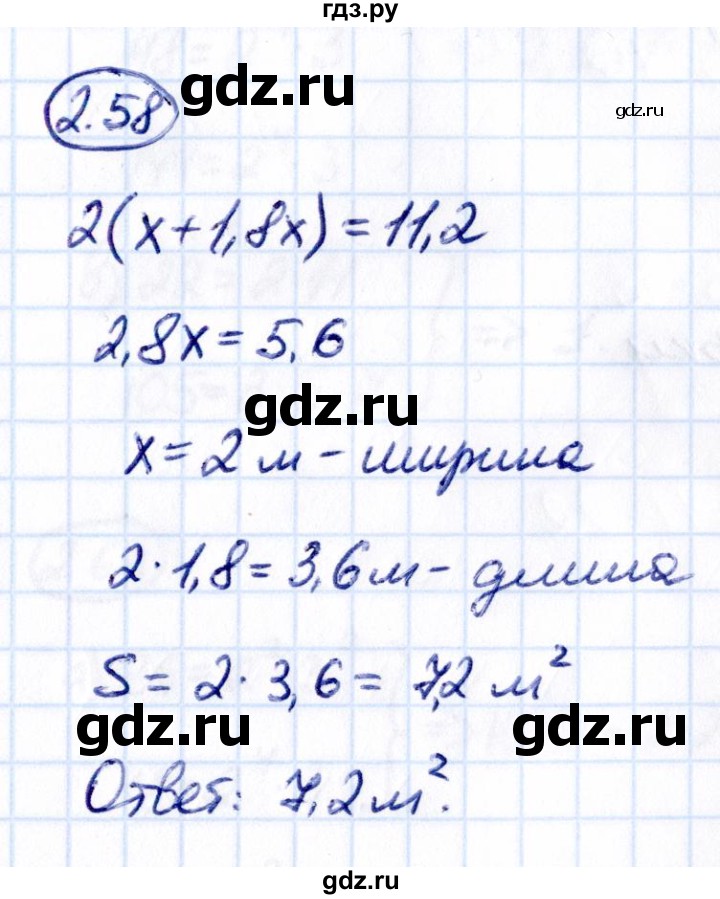 гдз.ру
2.58
gdz.ru
gdz.ru
2(x+1,8x)=11,2
2,8x=5,6
gdz.ru
x=2м - ширина
2·1,8=3,6м - длина
S=2·3,6=7,2 м²
gdz.ru
gdz.ru
Ответ: 7,2м².
gdz.ru